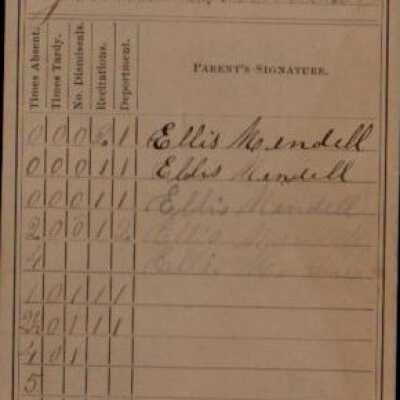 Times Absent. Times Tardy. No. Dismissals. Recitations. Deportment. PARENT'S SIGNATURE.
0 0 0 2 1 Ellis Mendell
0 0 0 1 1 Ellis Mendell
0 0 0 1 1 Ellis Mendell
2 0 0 1 2 Ellis
4 Ellis
1 0 1 1 1
2½ 0 1 1 1
4 0 1
5